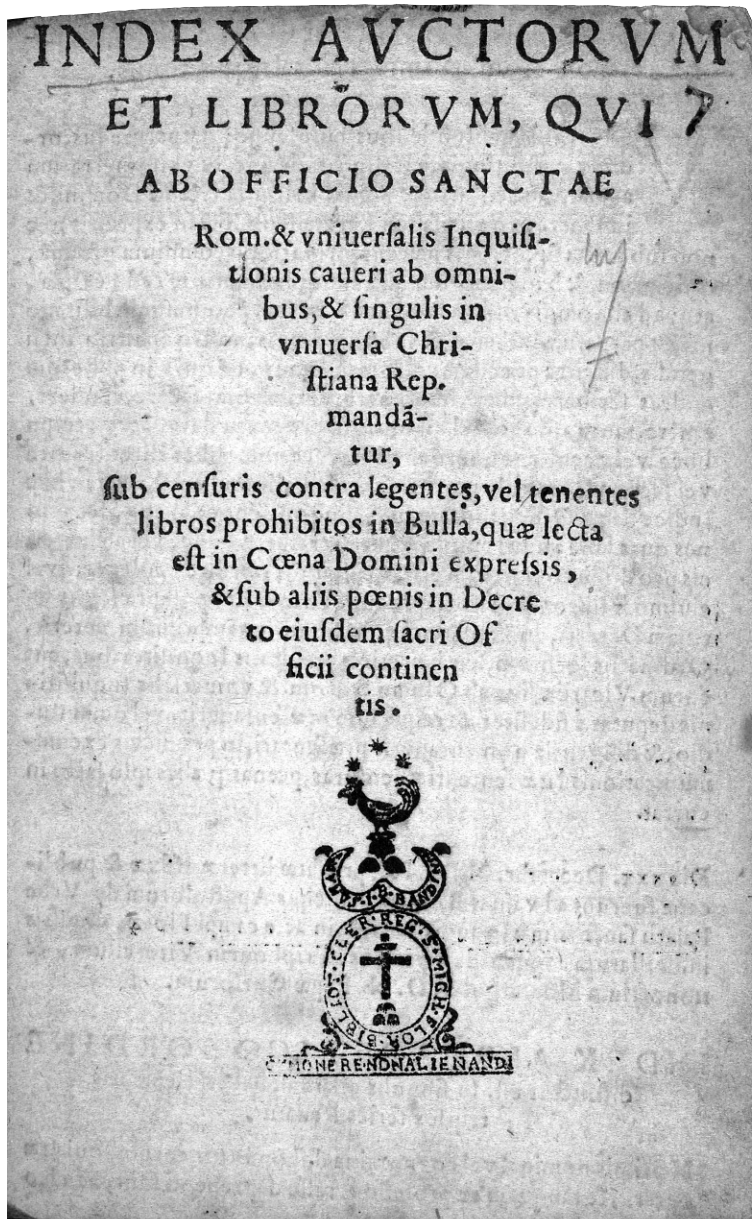 INDEX AVCTORVM
ET LIBRORVM, QVI 7
AB OFFICIO SANCTAE
Rom. & vniuerſalis Inquiſi-
tionis caueri ab omni-
bus, & ſingulis in
vniuerſa Chri-
ſtiana Rep.
mandā-
tur,
ſub cenſuris contra legentes, vel tenentes
libros prohibitos in Bulla, quæ lecta
eſt in Cœna Domini expreſsis,
& ſub aliis pœnis in Decre
to eiuſdem ſacri Of
ficii continen
tis.
I·B·BANDINI
BIBLIOT·CLER·REG·S·MICH·FLOR·